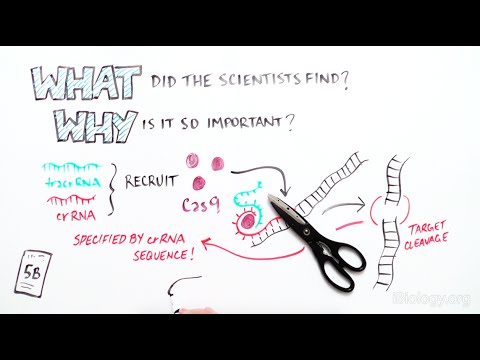 WHAT DID THE SCIENTISTS FIND?
WHY IS IT SO IMPORTANT?
tracrRNA
crRNA
RECRUIT
Cas9
SPECIFIED BY crRNA
SEQUENCE!
TARGET
CLEAVAGE
5B
iBiology.org